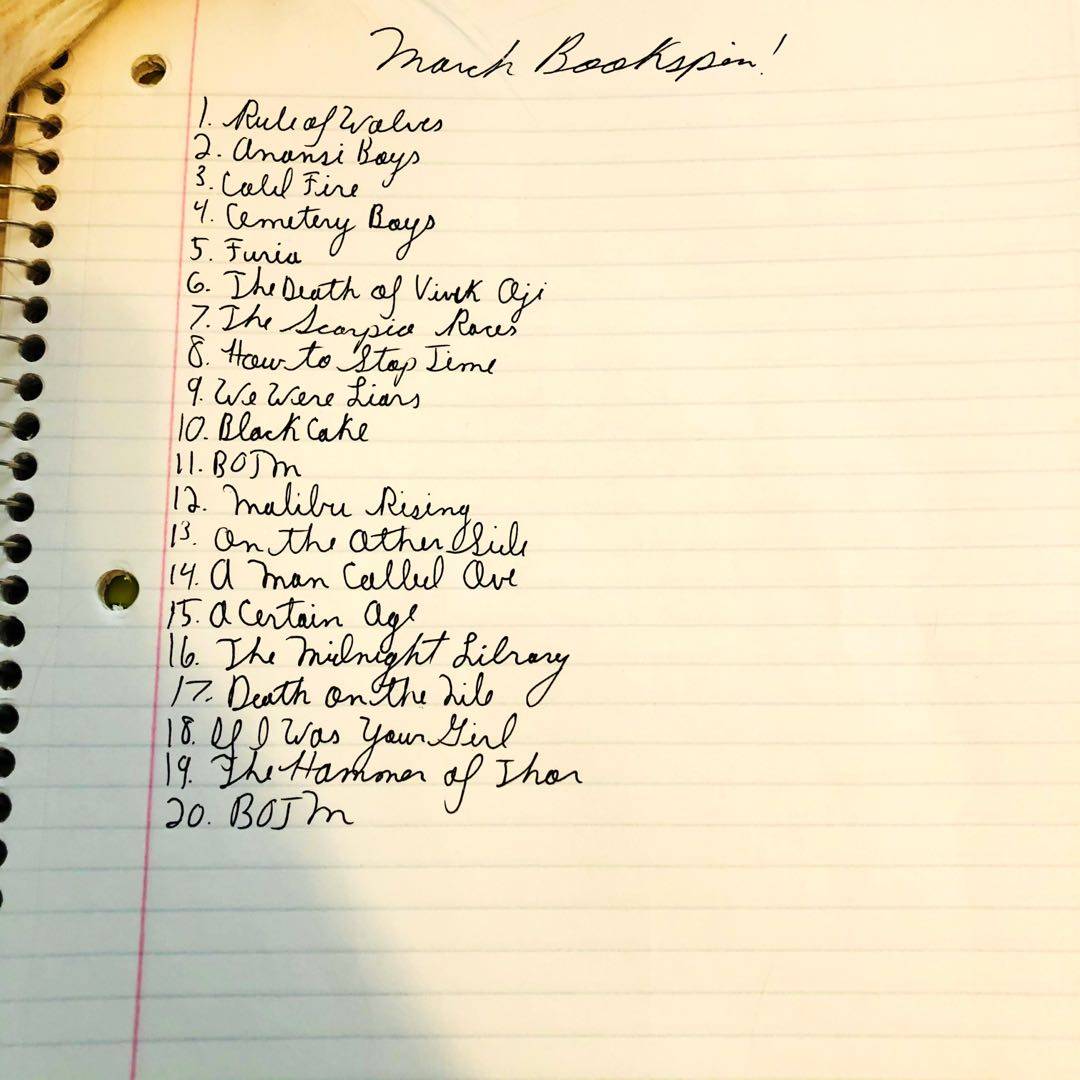 March Bookspin!
1. Rule of Wolves
2. Anansi Boys
3. Cold Fire
4. Cemetery Boys
5. Furia
6. The Death of Vivek Oji
7. The Scorpio Races
8. How to Stop Time
9. We Were Liars
10. Black Cake
11. BOTM
12. Malibu Rising
13. On the Other Side
14. A Man Called Ove
15. A Certain Age
16. The Midnight Library
17. Death on the Nile
18. If I Was Your Girl
19. The Hammer of Thor
20. BOTM